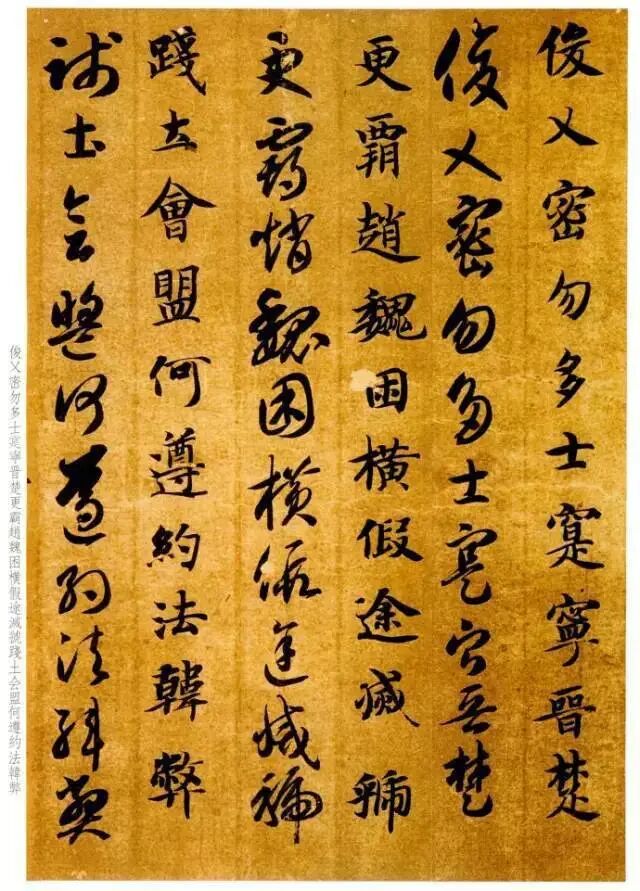 俊乂密勿多士寔寧晉楚
俊乂密勿多士寔寧晉楚
更霸趙魏困橫假途滅虢
更霸趙魏困橫假途滅虢
踐土會盟何遵約法韓弊
踐土會盟何遵約法韓弊
俊乂密勿多士寔寧晉楚更霸趙魏困橫假途滅虢踐土会盟何遵约法韓弊